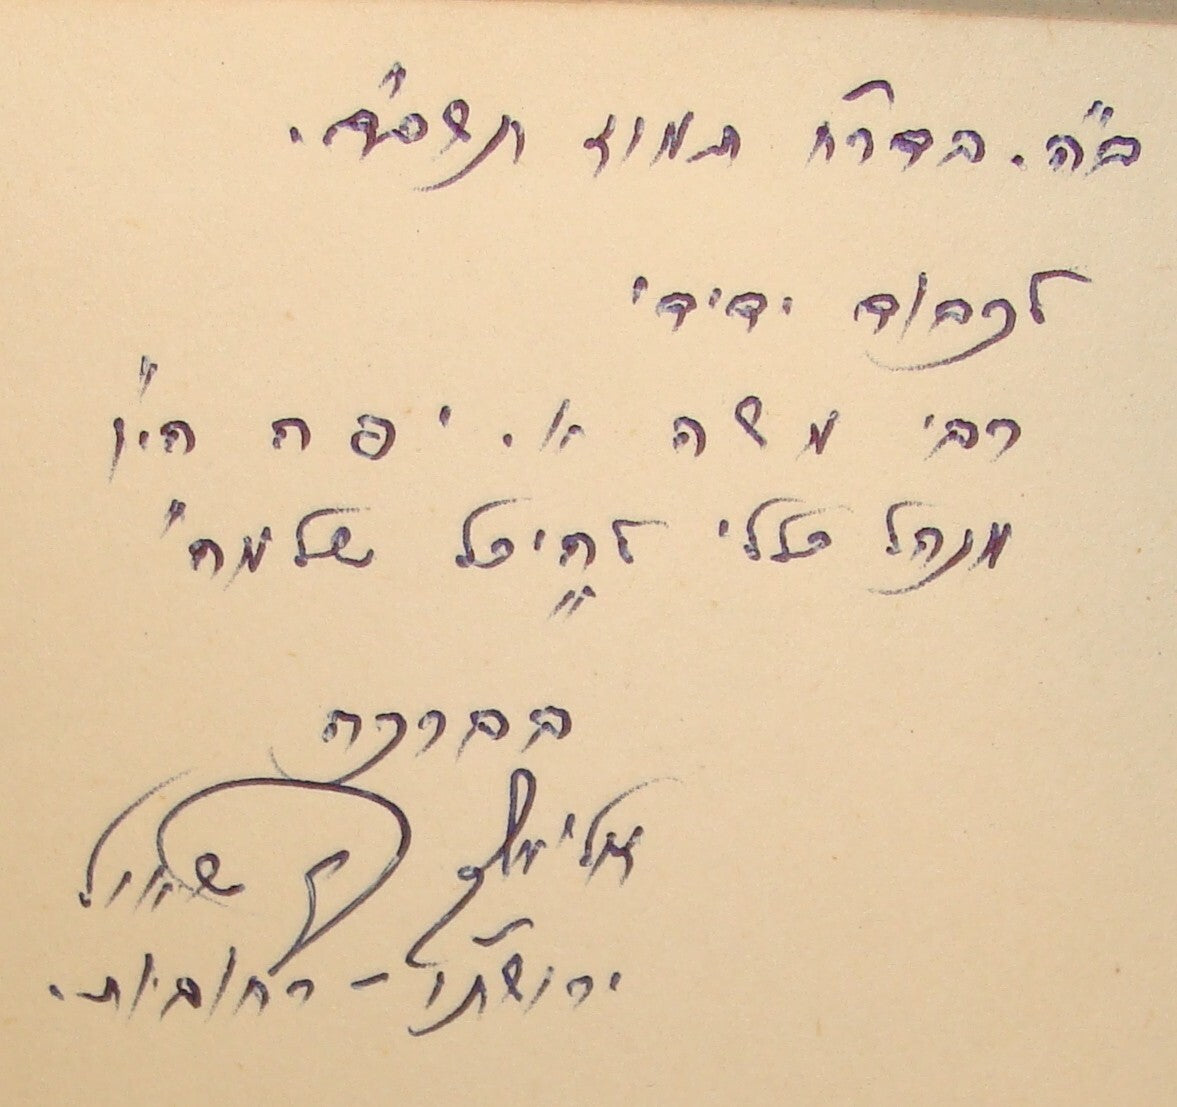 ב"ה. בדר"ח תמוז תשכ"ד.
לכבוד ידידי
רבי משה א. יפה הי"ו
מנהל כללי להיכל שלמה"
בברכה
אלימלך שאול
ירושת"ו - רחובות.